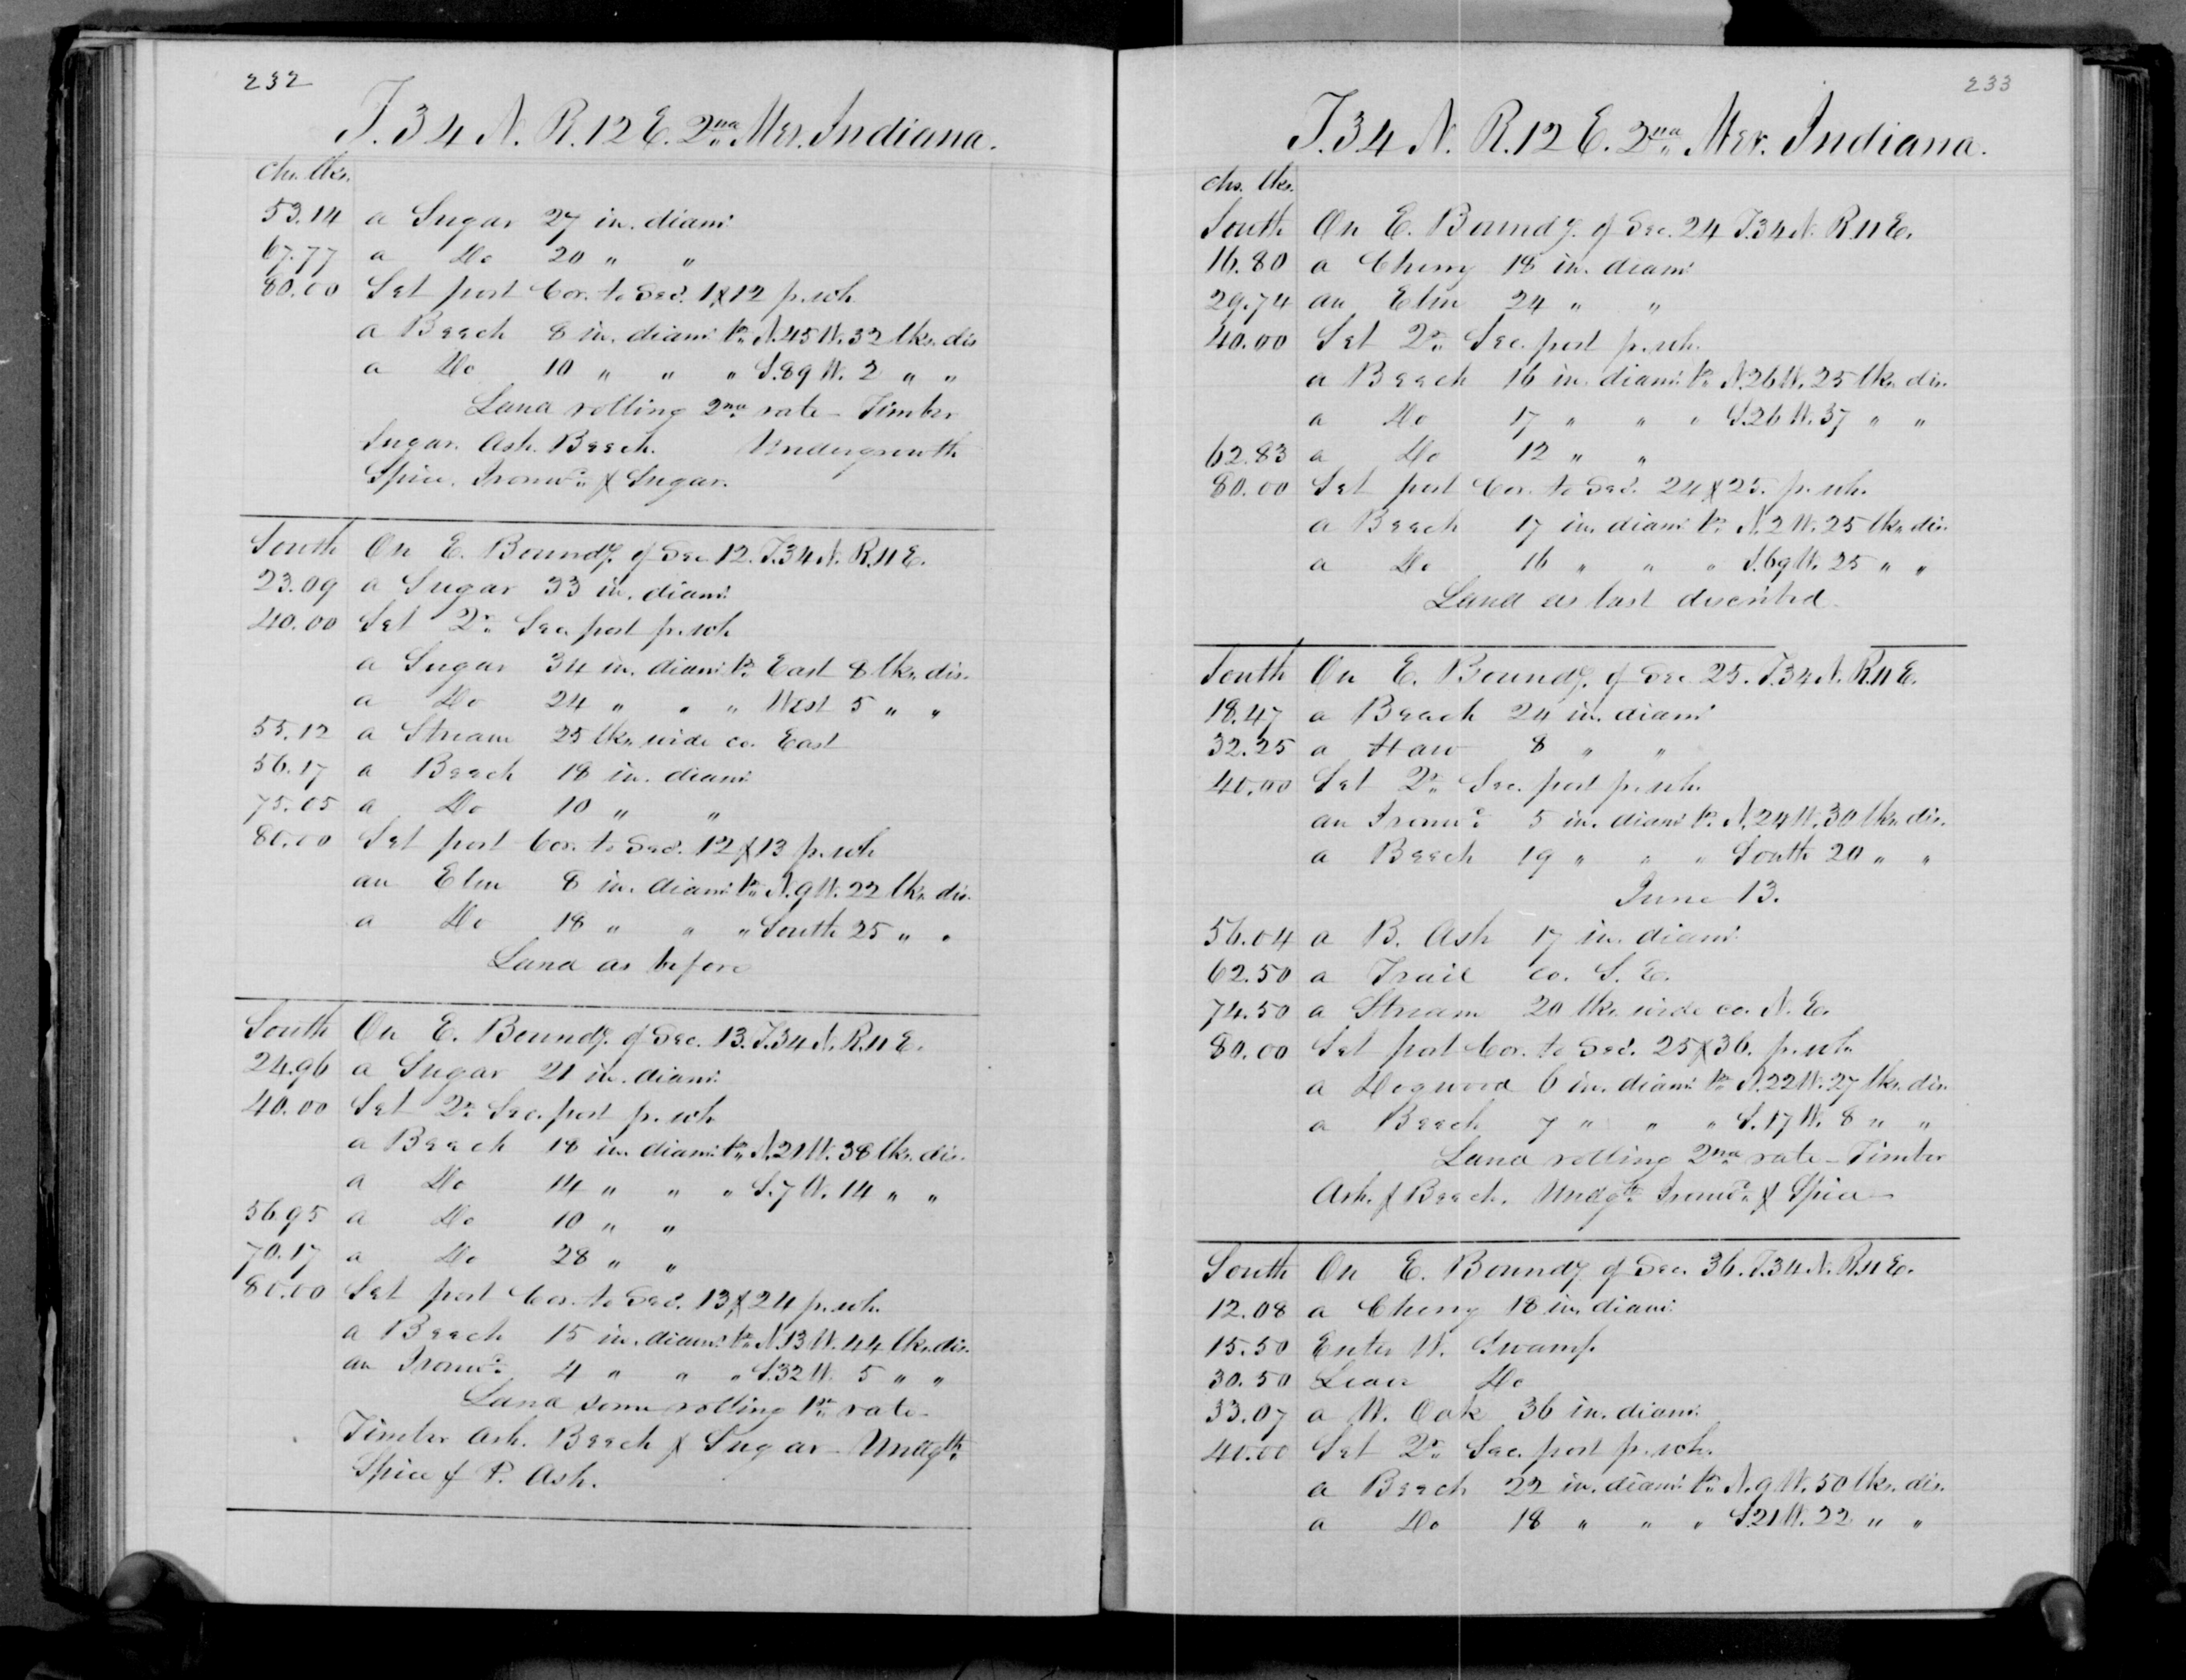 232
T. 34 N. R. 12 E. 2nd Mer. Indiana.
chs. lks.
53.14 a Sugar 27 in. diam.
67.77 a Do 20 " "
80.00 Set post Cor. to Secs. 1 & 12 p. sch
a Beech 8 in. diam. br. N. 45 W. 32 lks. dis
a Do 10 " " " S. 89 W. 2 " "
Land rolling 2nd rate – Timber
Sugar. Ash. Beech. Undergrowth
Spice, Ironwd. & Sugar.
South On E. Boundy. of Sec. 12. T. 34 N. R. 11 E.
23.09 a Sugar 33 in. diam.
40.00 Set qr. Sec. post p. sch
a Sugar 34 in. diam. br. East 8 lks. dis.
a Do 24 " " " West 5 " "
55.12 a Stream 25 lks. wide co. East
56.17 a Beech 18 in. diam.
75.05 a Do 10 " "
80.00 Set post Cor. to Secs. 12 & 13 p. sch
an Elm 8 in. diam. br. N. 9 W. 22 lks. dis.
a Do 18 " " " South 25 " "
Land as before
South On E. Boundy. of Sec. 13. T. 34 N. R. 11 E.
24.96 a Sugar 21 in. diam.
40.00 Set qr. Sec. post p. sch
a Beech 18 in. diam. br. N. 21 W. 38 lks. dis.
a Do 14 " " " S. 7 W. 14 " "
56.95 a Do 10 " "
70.17 a Do 28 " "
80.00 Set post Cor. to Secs. 13 & 24 p. sch.
a Beech 15 in. diam. br. N. 13 W. 44 lks. dis.
an Ironwd. 4 " " " S. 32 W. 5 " "
Land some rolling 1st rate –
Timber Ash. Beech & Sugar – Undgth.
Spice & P. Ash.
233
T. 34 N. R. 12 E. 2nd Mer. Indiana.
chs. lks.
South On E. Boundy. of Sec. 24 T. 34 N. R. 11 E.
16.80 a Cherry 18 in. diam.
29.74 an Elm 24 " "
40.00 Set qr. Sec. post p. sch.
a Beech 16 in. diam. br. N. 26 W. 25 lks. dis.
a Do 17 " " " S. 26 W. 37 " "
62.83 a Do 12 " "
80.00 Set post Cor. to Secs. 24 & 25. p. sch.
a Beech 17 in. diam. br. N. 2 W. 25 lks. dis.
a Do 16 " " " S. 69 W. 25 " "
Land as last described.
South On E. Boundy. of Sec. 25. T. 34 N. R. 11 E.
18.47 a Beech 24 in. diam.
32.25 a Haw 8 " "
40.00 Set qr. Sec. post p. sch.
an Ironwd. 5 in. diam. br. N. 24 W. 30 lks. dis.
a Beech 19 " " " South 20 " "
June 13.
56.04 a B. Ash 17 in. diam.
62.50 a Trail co. S. E.
74.50 a Stream 20 lks. wide co. N. E.
80.00 Set post Cor. to Secs. 25 & 36. p. sch.
a Dogwood 6 in. diam. br. N. 22 W. 27 lks. dis.
a Beech 7 " " " S. 17 W. 8 " "
Land rolling 2nd rate – Timber
Ash. & Beech. Undgth. Ironwd. & Spice –
South On E. Boundy of Sec. 36. T. 34 N. R. 11 E.
12.08 a Cherry 18 in. diam.
15.50 Enter W. Swamp.
30.50 Leave Do
33.07 a W. Oak 36 in. diam.
40.00 Set qr. Sec. post p. sch.
a Beech 22 in. diam. br. N. 9 W. 50 lks. dis.
a Do 18 " " " S. 21 W. 22 " "